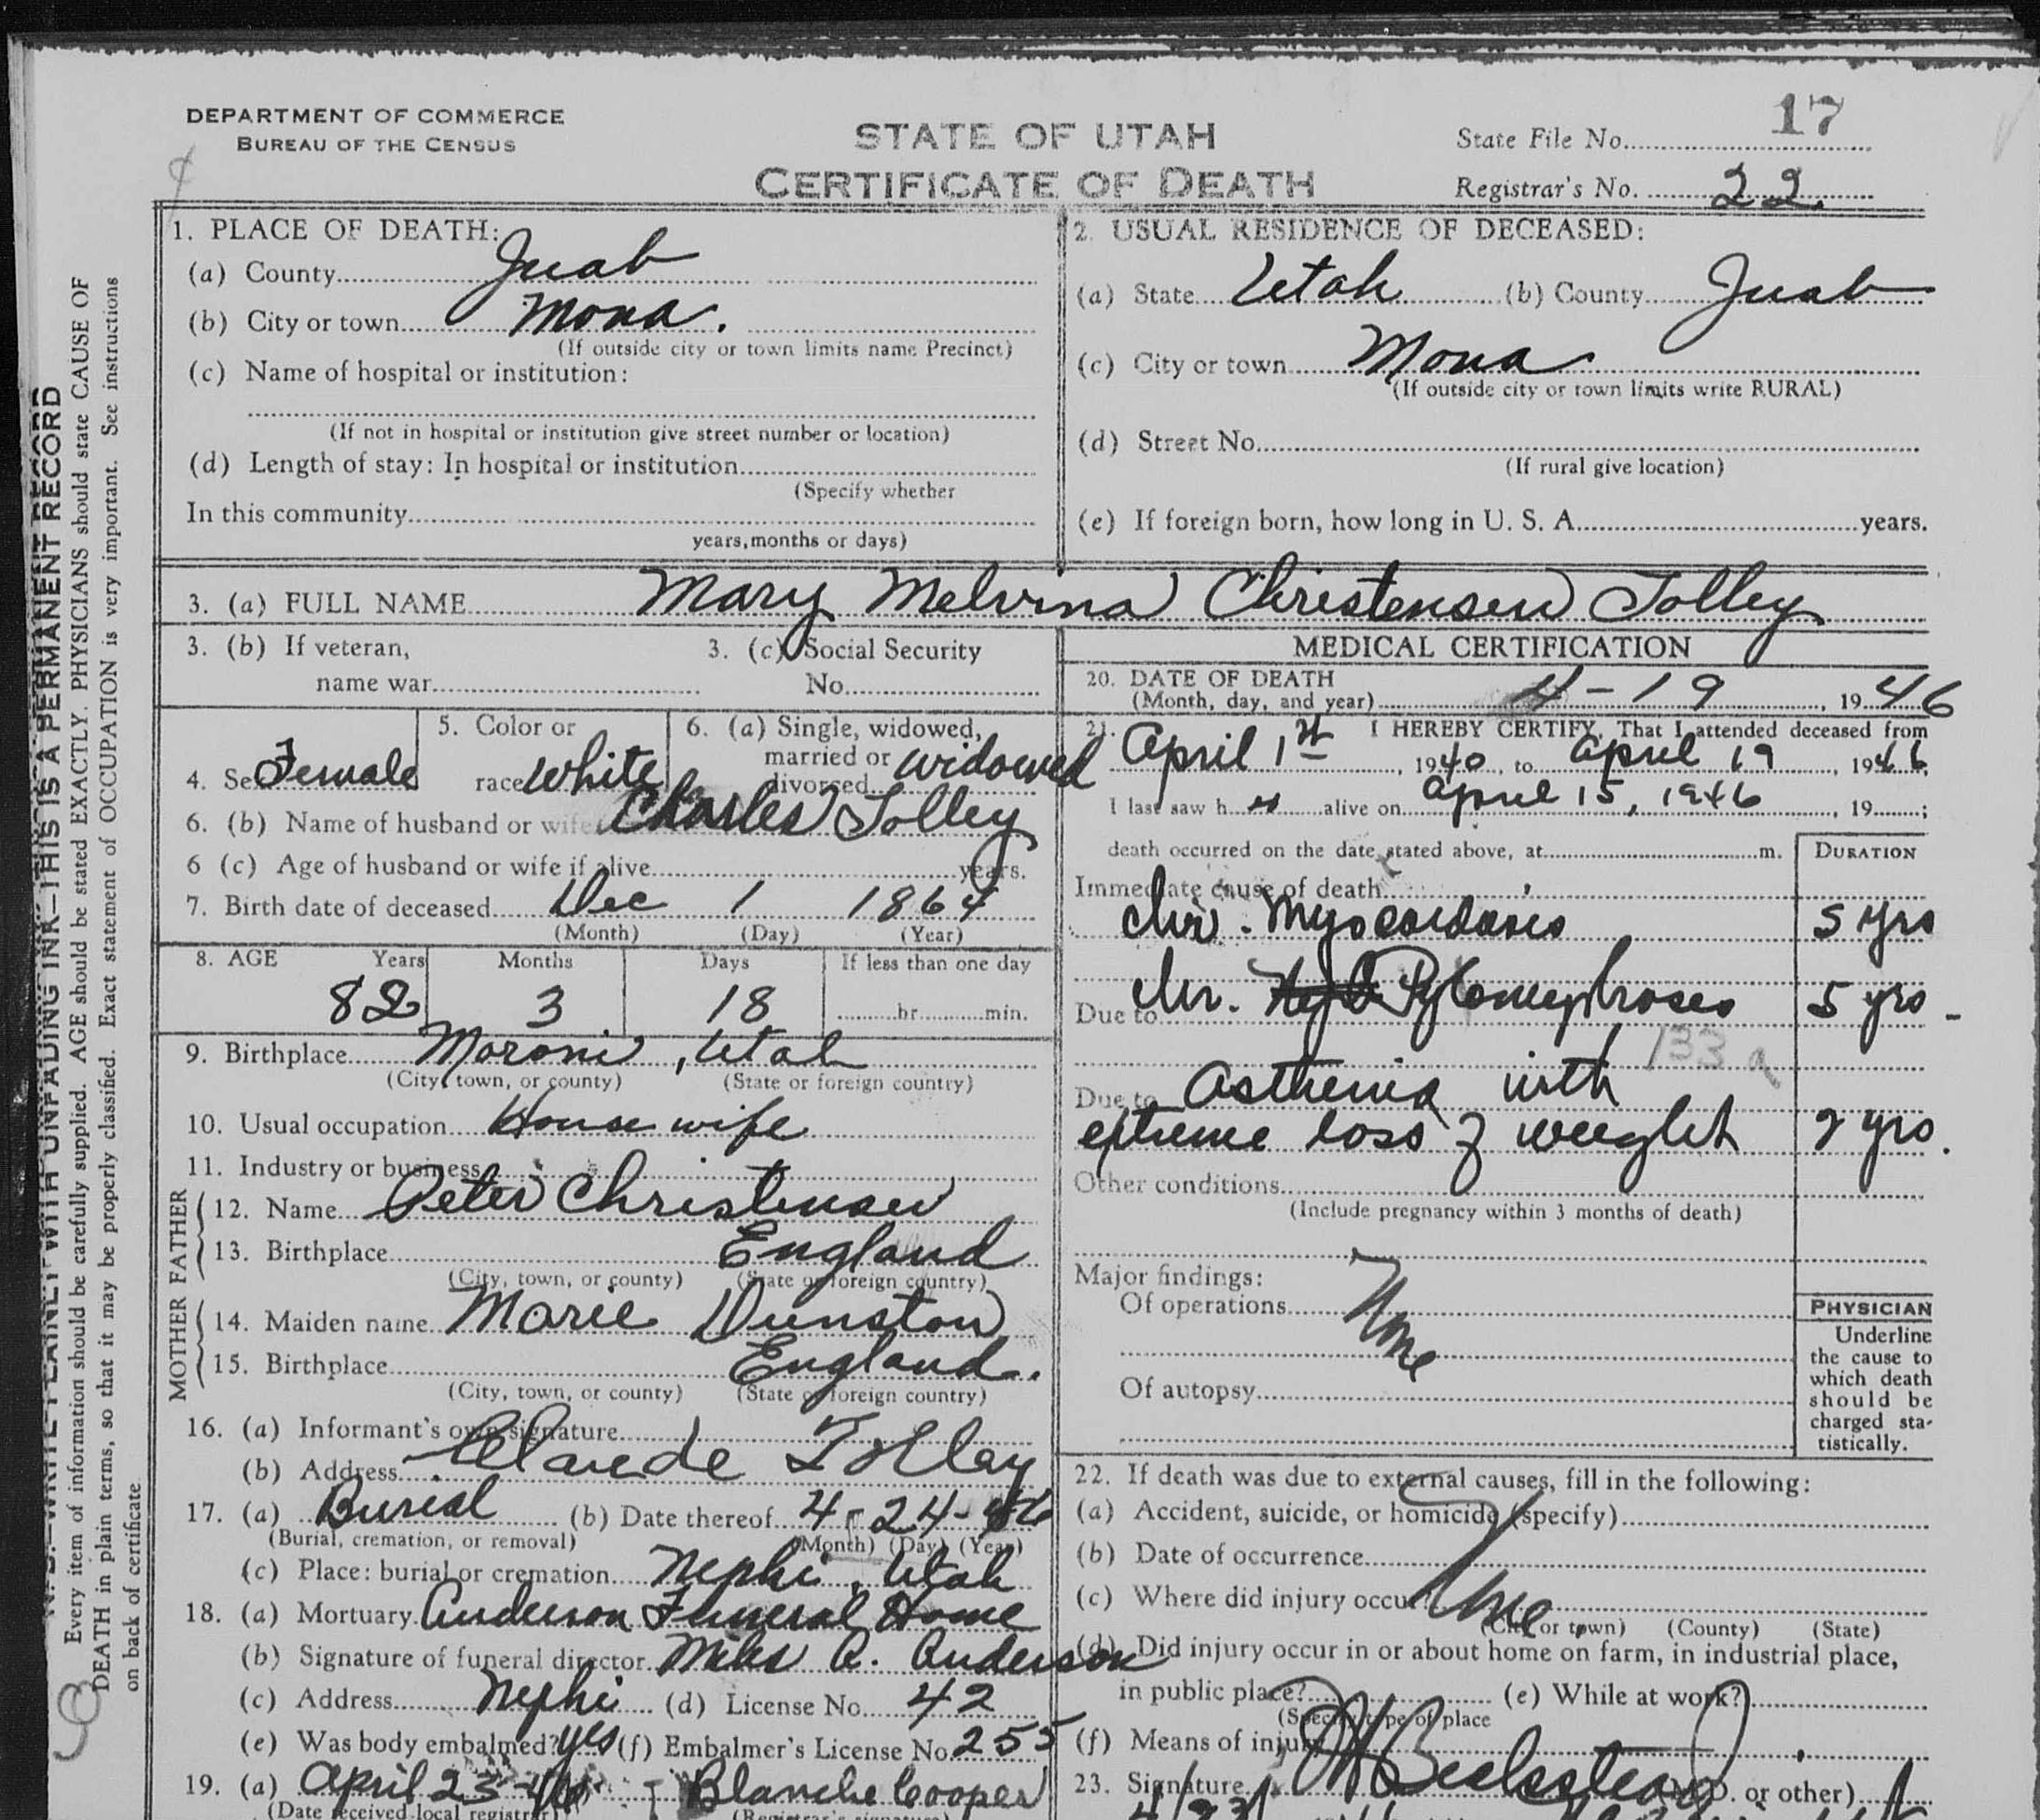 DEPARTMENT OF COMMERCE
BUREAU OF THE CENSUS
STATE OF UTAH
CERTIFICATE OF DEATH
17
State File No.
Registrar's No. 22
THIS IS A PERMANENT RECORD
Every item of information should be carefully supplied. AGE should be stated EXACTLY. PHYSICIANS should state CAUSE OF
DEATH in plain terms, so that it may be properly classified. Exact statement of OCCUPATION is very important. See instructions
on back of certificate.
1. PLACE OF DEATH:
(a) County Juab
(b) City or town Mona.
(If outside city or town limits name Precinct)
(c) Name of hospital or institution:
(If not in hospital or institution give street number or location)
(d) Length of stay: In hospital or institution
(Specify whether
In this community
years, months or days)
2. USUAL RESIDENCE OF DECEASED:
(a) State Utah (b) County Juab
(c) City or town Mona
(If outside city or town limits write RURAL)
(d) Street No.
(If rural give location)
(e) If foreign born, how long in U. S. A. years.
3. (a) FULL NAME Mary Melvina Christensen Tolley
3. (b) If veteran,
name war
3. (c) Social Security
No.
4. Sex Female
5. Color or
race White
6. (a) Single, widowed,
married or
divorced widowed
6. (b) Name of husband or wife Charles Tolley
6 (c) Age of husband or wife if alive years.
7. Birth date of deceased Dec 1 1864
(Month) (Day) (Year)
8. AGE Years Months Days If less than one day
82 3 18 hr. min.
9. Birthplace Moroni, Utah
(City, town, or county) (State or foreign country)
10. Usual occupation House wife
11. Industry or business
FATHER
12. Name Peter Christensen
13. Birthplace England
(City, town, or county) (State or foreign country)
MOTHER
14. Maiden name Marie Dunston
15. Birthplace England.
(City, town, or county) (State or foreign country)
16. (a) Informant's own signature
(b) Address Claude Tolley
17. (a) Burial (b) Date thereof 4-24-46
(Burial, cremation, or removal) (Month) (Day) (Year)
(c) Place: burial or cremation Nephi, Utah
18. (a) Mortuary Anderson Funeral Home
(b) Signature of funeral director Miles A. Anderson
(c) Address Nephi (d) License No. 42
(e) Was body embalmed? yes (f) Embalmer's License No. 255
19. (a) April 23-46 Blanche Cooper
(Date received local registrar) (Registrar's signature)
MEDICAL CERTIFICATION
20. DATE OF DEATH
(Month, day, and year) 4-19, 1946
21. I HEREBY CERTIFY, That I attended deceased from
April 1st, 1940, to April 19, 1946
I last saw her alive on April 15, 1946, 19 ;
death occurred on the date stated above, at m.
DURATION
Immediate cause of death
Chr. Myocardosis 5 yrs
Due to Chr. 5 yrs-
133 a
Due to Asthenia with
extreme loss of weight 2 yrs.
Other conditions
(Include pregnancy within 3 months of death)
Major findings:
Of operations None
Of autopsy
PHYSICIAN
Underline
the cause to
which death
should be
charged sta-
tistically.
22. If death was due to external causes, fill in the following:
(a) Accident, suicide, or homicide (specify)
(b) Date of occurrence
(c) Where did injury occur? None
(City or town) (County) (State)
(d) Did injury occur in or about home on farm, in industrial place,
in public place? (e) While at work?
(Specify type of place
(f) Means of injury
23. Signature Beckstead (M.D. or other)